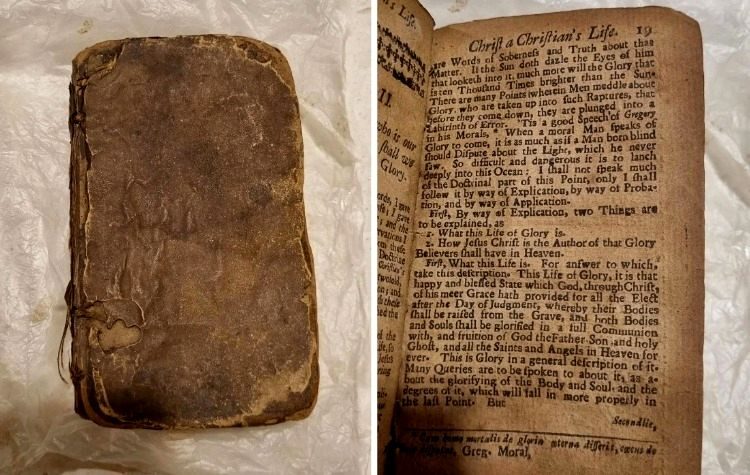 's Life.
II.
who is our
ſhall we
Glory.
Chriſt a Chriſtian's Life. 19
are Words of Soberneſs and Truth about that
Matter. If the Sun doth dazle the Eyes of him
that looketh into it, much more will the Glory that
is ten Thouſand Times brighter than the Sun.
There are many Points wherein Men meddle about
Glory, who are taken up into ſuch Raptures, that
before they come down, they are plunged into a
Labirinth of Error. 'Tis a good Speech of Gregory
in his Morals, * When a moral Man ſpeaks of
Glory to come, it is as much as if a Man born blind
ſhould Diſpute about the Light, which he never
ſaw. So difficult and dangerous it is to lanch
deeply into this Ocean: I ſhall not ſpeak much
of the Doctrinal part of this Point, only I ſhall
follow it by way of Explication, by way of Proba-
tion, and by way of Application.
Firſt, By way of Explication, two Things are
to be explained, as
1. What this Life of Glory is.
2. How Jeſus Chriſt is the Author of that Glory
Believers ſhall have in Heaven.
Firſt, What this Life is. For anſwer to which,
take this deſcription. This Life of Glory, it is that
happy and bleſſed State which God, through Chriſt,
of his meer Grace hath provided for all the Elect
after the Day of Judgment, whereby their Bodies
ſhall be raiſed from the Grave, and both Bodies
and Souls ſhall be glorified in a full Communion
with, and fruition of God the Father Son, and holy
Ghoſt, and all the Saints and Angels in Heaven for
ever. This is Glory in a general deſcription of it.
Many Queries are to be ſpoken to about it, as a-
bout the glorifying of the Body and Soul, and the
degrees of it, which will fall in more properly in
the laſt Point. But
Secondlie,
homo mortalis de gloria æterna diſſerit, cæcus de
Greg. Moral,